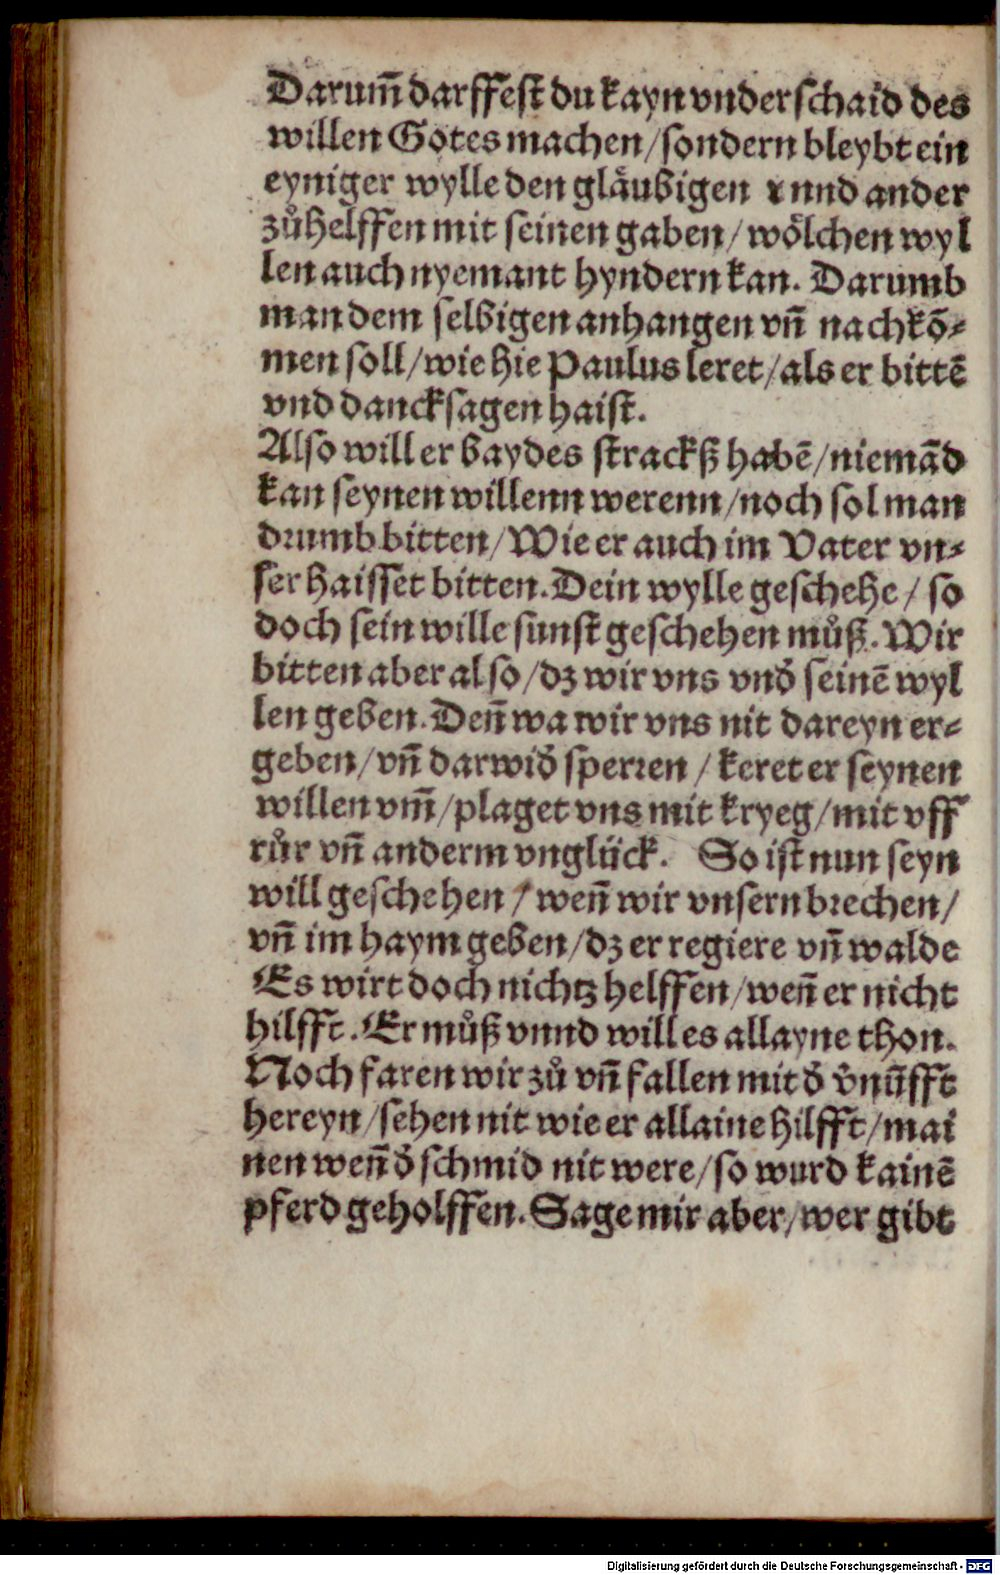 Darum̃ darffest du kayn vnderschaid des
willen Gotes machen/sondern bleybt ein
eyniger wylle den glåubigen vnnd ander
zůhelffen mit seinen gaben/wölchen wyl
len auch nyemant hyndern kan. Darumb
man dem selbigen anhangen vñ nachkõ⸗
men soll/wie hie Paulus leret/als er bittẽ
vnd dancksagen haist.
Also will er baydes strackß habẽ/niemãd
kan seynen willenn werenn/noch sol man
drumb bitten/Wie er auch im Vater vn⸗
ser haisset bitten. Dein wylle geschehe/so
doch sein wille sunst geschehen můß. Wir
bitten aber also/dz wir vns vnd̃ seinẽ wyl
len geben. Deñ wa wir vns nit dareyn er⸗
geben/vñ darwid̃ sperren/keret er seynen
willen vm̃/plaget vns mit kryeg/mit vff
růr vñ anderm vnglück. So ist nun seyn
will geschehen/weñ wir vnsern brechen/
vñ im haym geben/dz er regiere vñ walde
Es wirt doch nichtz helffen/weñ er nicht
hilfft. Er můß vnnd will es allayne thon.
Noch faren wir zů vñ fallen mit d̃ ṽnũfft
hereyn/sehen nit wie er allaine hilfft/mai
nen weñ d̃ schmid nit were/so wurd kainẽ
pferd geholffen. Sage mir aber/wer gibt
Digitalisierung gefördert durch die Deutsche Forschungsgemeinschaft - DFG